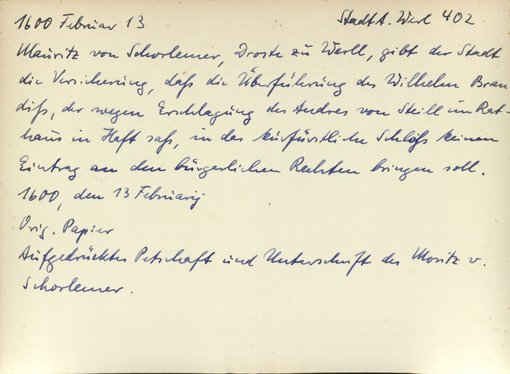 1600 Februar 13 StadtA. Werl 402
Mauritz von Schorlemer, Droste zu Werll, gibt der Stadt
die Versicherung, daß die Überführung des Wilhelm Bran
diß, der wegen Erschlagung des Andres von Steill im Rat-
haus in Haft saß, in das kurfürstliche Schloß keinen
Eintrag an den bürgerlichen Rechten bringen soll.
1600, den 13 Februarij
Orig. Papier
Aufgedrücktes Petschaft und Unterschrift des Moritz v.
Schorlemer.